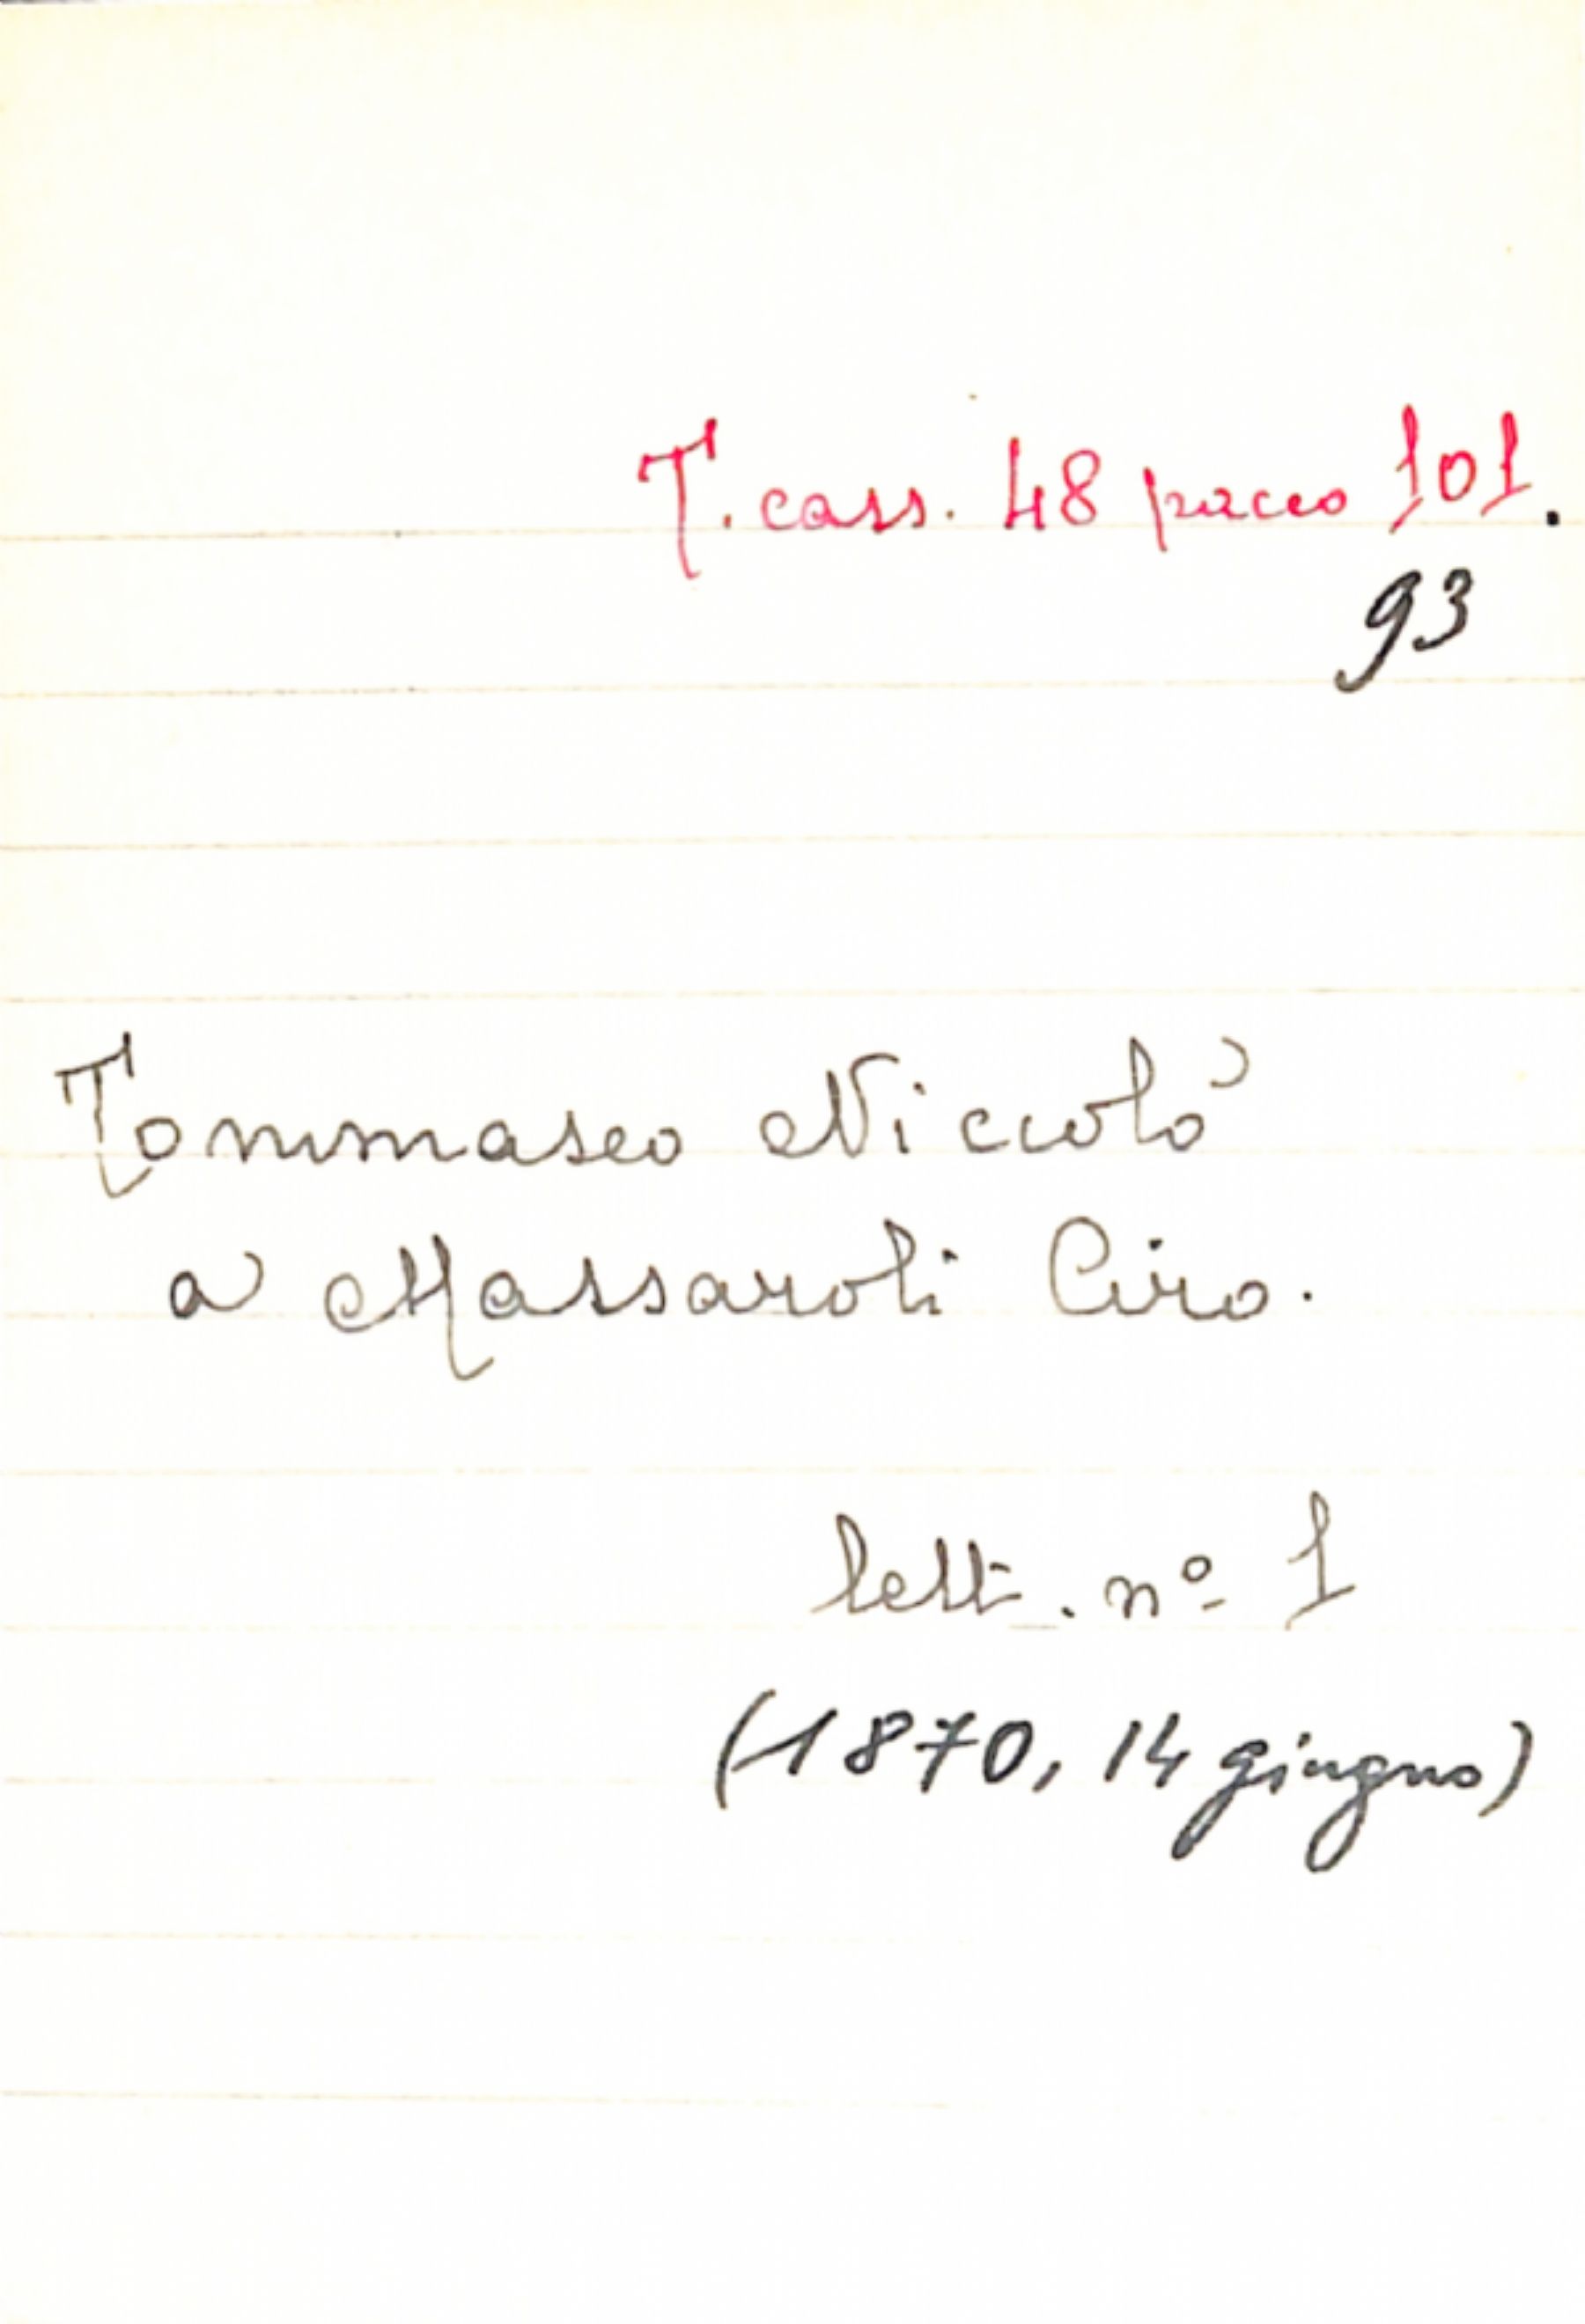 T. cass. 48 pacco 101.
93
Tommaseo Niccolò
a Massaroli Ciro.
lett. nº 1
(1870, 14 giugno)